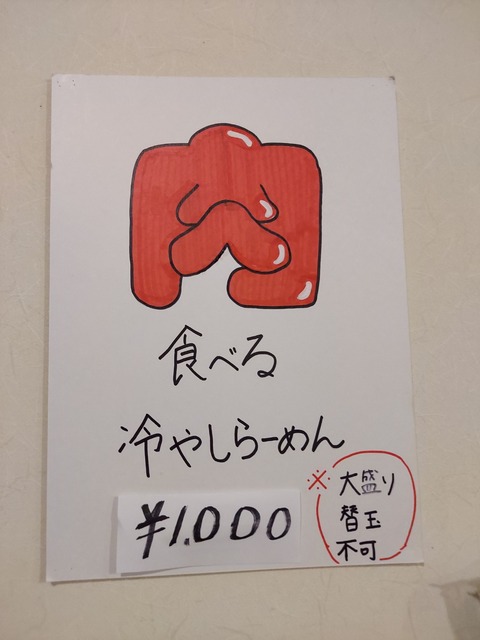 肉
食べる
冷やしらーめん
¥1.000
※大盛り
替玉
不可